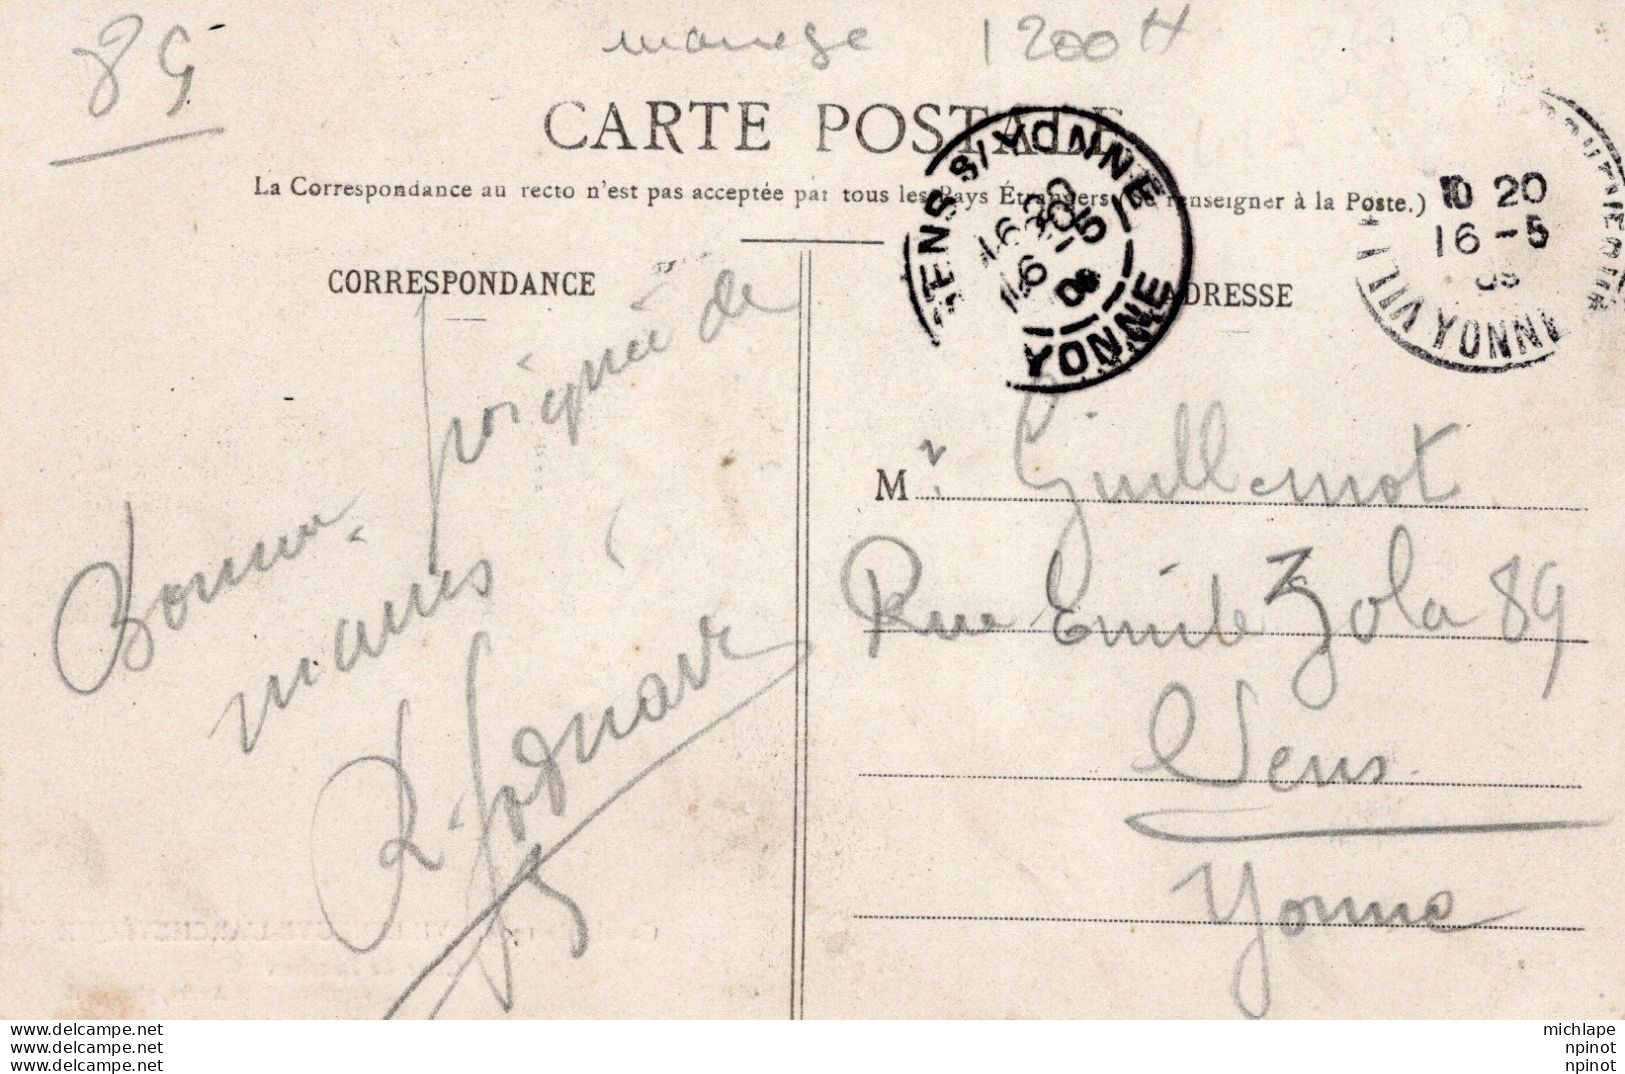 89
manege 1200 H
CARTE POSTALE
(La Correspondance au recto n'est pas acceptée par tous les Pays Étrangers. Se renseigner à la Poste.)
SENS S/YONNE
16 20
16 -5
YONNE
10 20
16 -5
YONNE
CORRESPONDANCE
ADRESSE
Bonne poignée de
mains
M r Guillemot
Rue Emile Zola 89
Sens
Yonne
www.delcampe.net
www.delcampe.net
www.delcampe.net
michlape
npinot
npinot